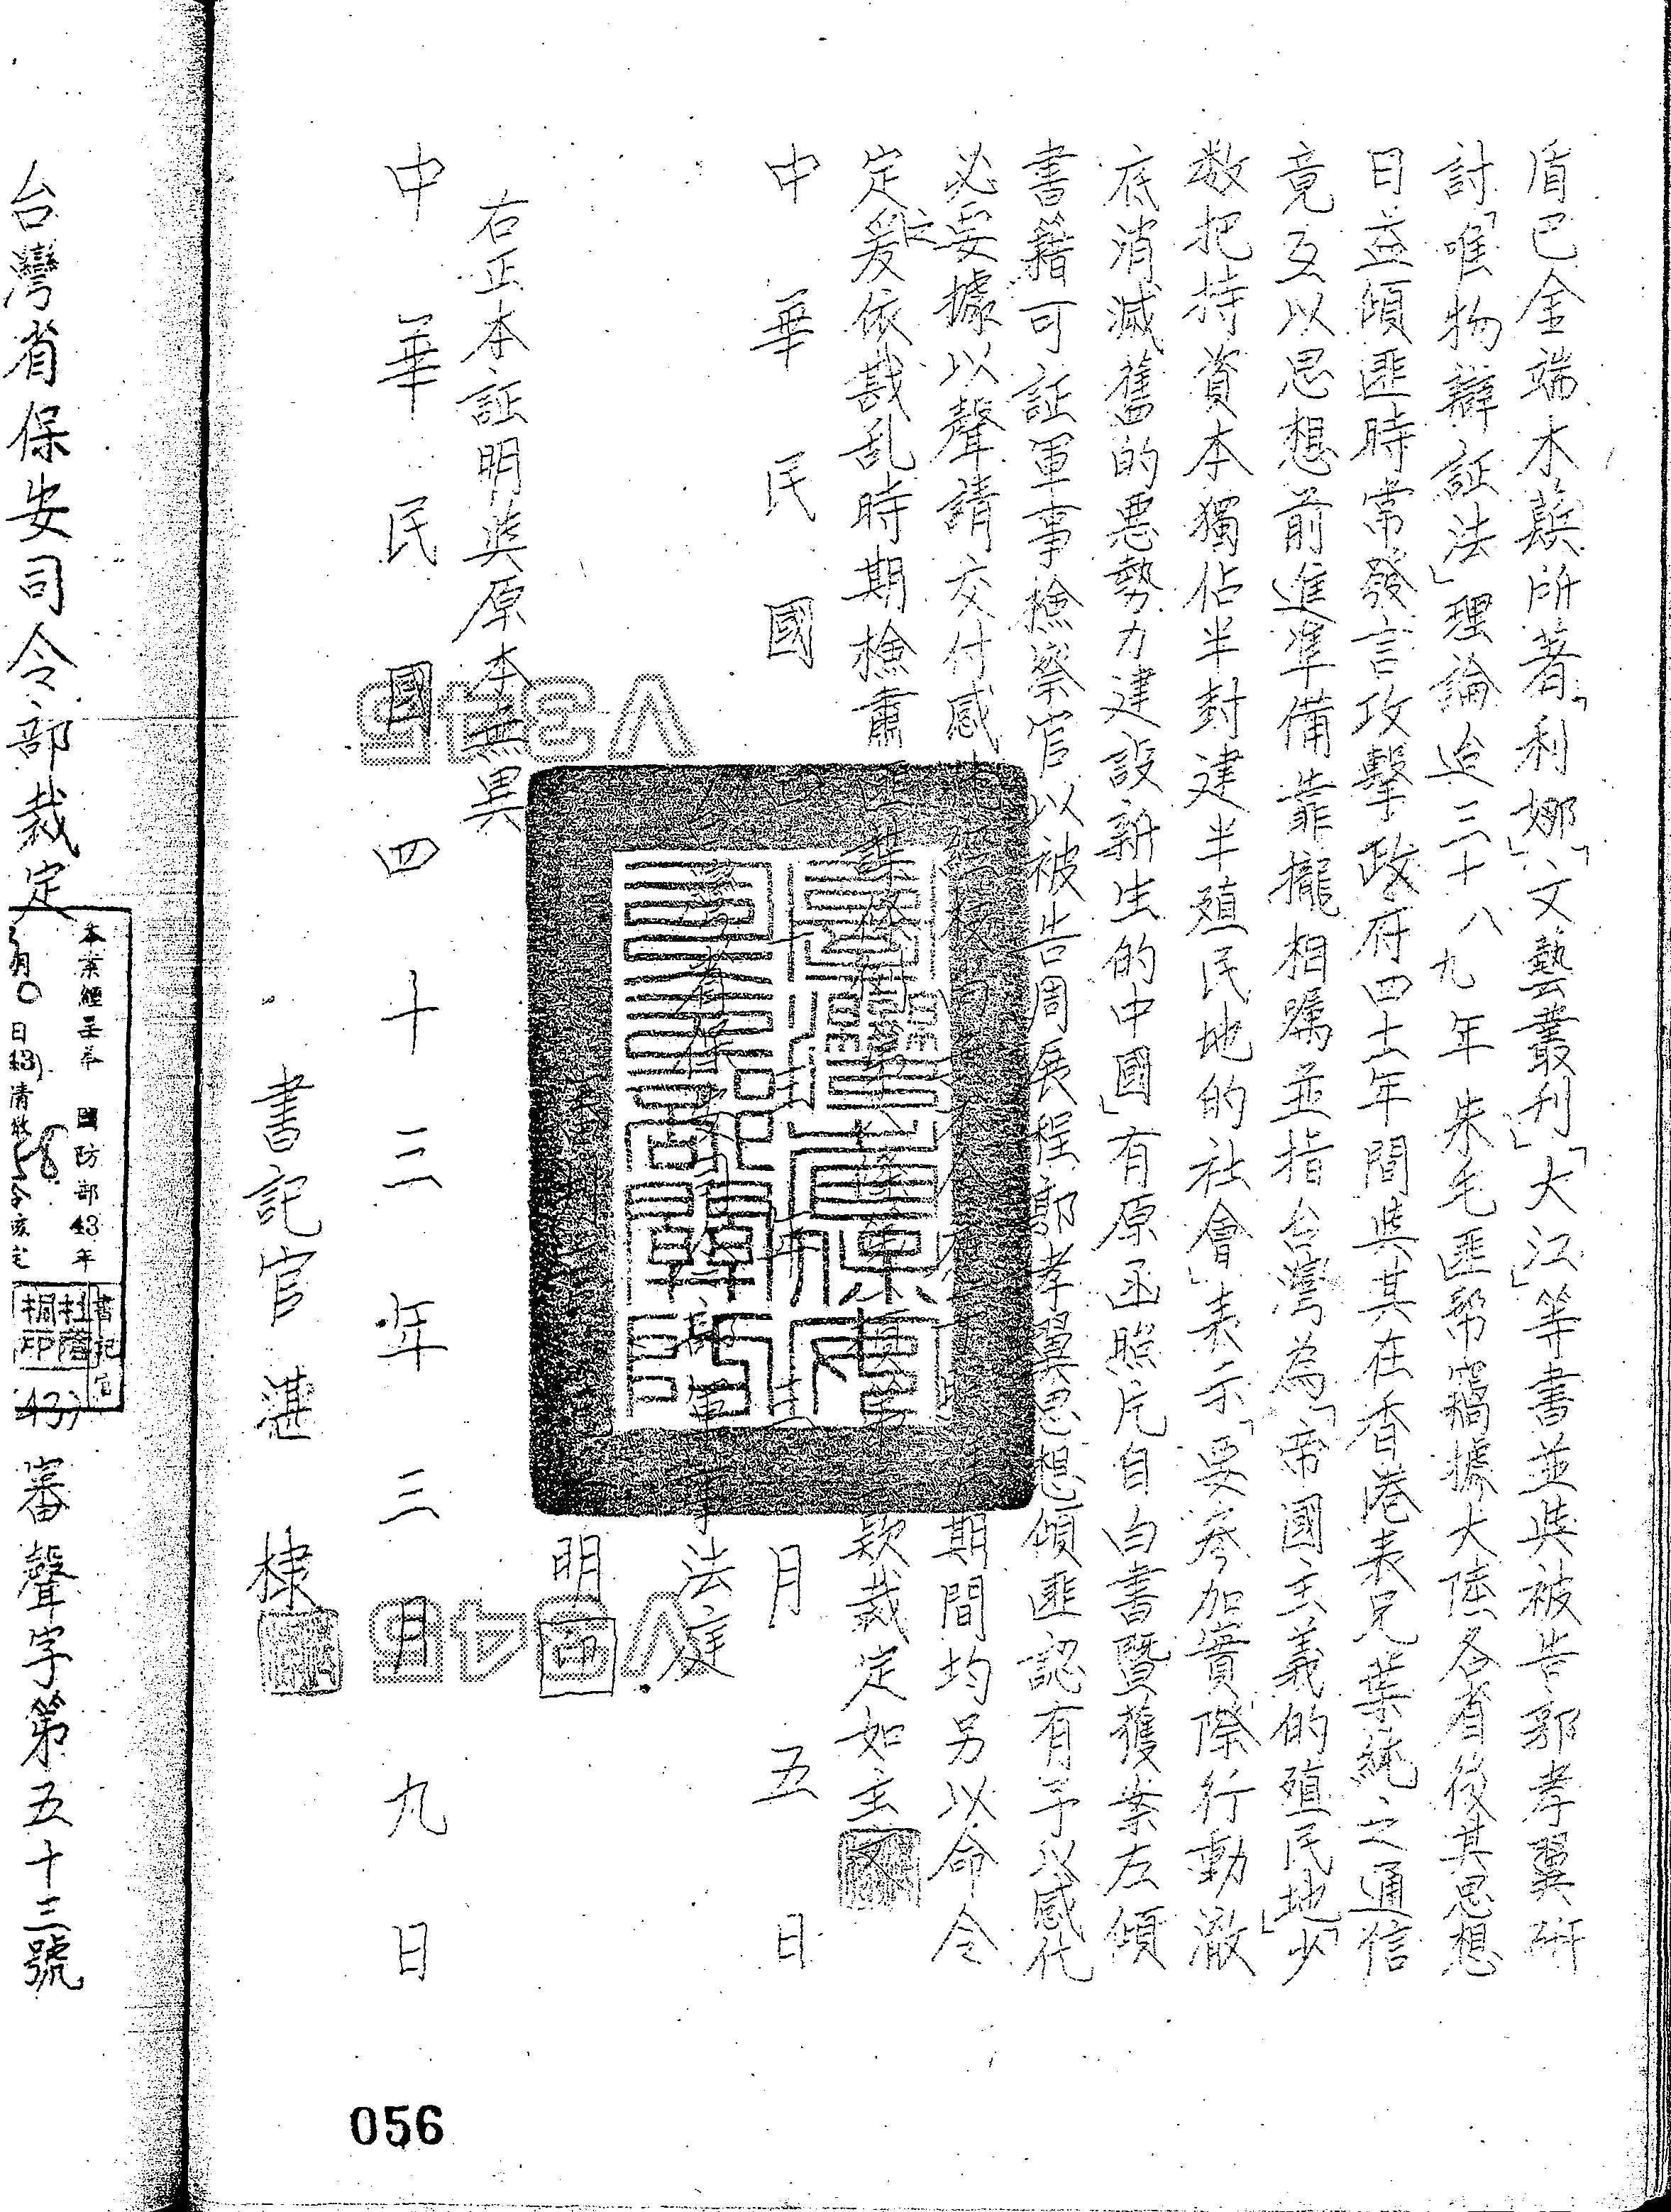 盾巴金端木蕻所著「利娜」「文藝叢刊」「大江」等書並與被告郭孝翼研
討「唯物辯証法」理論迨三十八九年朱毛匪幫竊據大陸各省後其思想
日益傾匪時常發言攻擊政府四十年間與其在香港表兄葉純之通信
竟互以思想前進準備靠攏相囑並指台灣為「帝國主義的殖民地」「少
数把持資本獨佔半封建半殖民地的社會」表示「要參加實際行動澈
底消滅舊的惡勢力建設新生的中國」有原函照片自白書暨獲案左傾
書籍可証軍事檢察官以被告周展程郭孝翼思想傾匪認有予以感化
必要據以聲請交付感化 期間均另以命令
定之爰依戡乱時期檢肅 款裁定如主文
中華民國 月五日
法庭
明
右正本証明與原本無異
中華民國四十三年三月九日
書記官湛棣
台灣省保安司令部裁定
(43)審聲字第五十三號
國防部43年
V345
V345
056